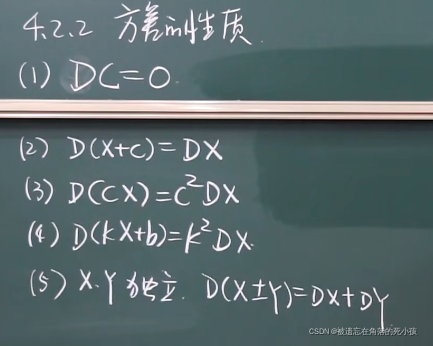 4.2.2 方差的性质
(1) DC=0.
(2) D(X+C)=DX
(3) D(CX)=C²DX
(4) D(kX+b)=k²DX.
(5) X.Y独立. D(X±Y)=DX+DY
CSDN @被遗忘在角落的死小孩